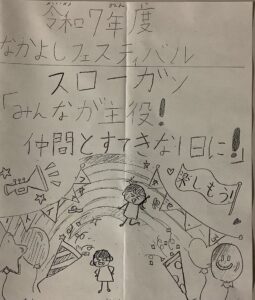 令和7年度
なかよしフェスティバル
スローガン
「みんなが主役!
仲間とすてきな1日に!」
楽しもう!